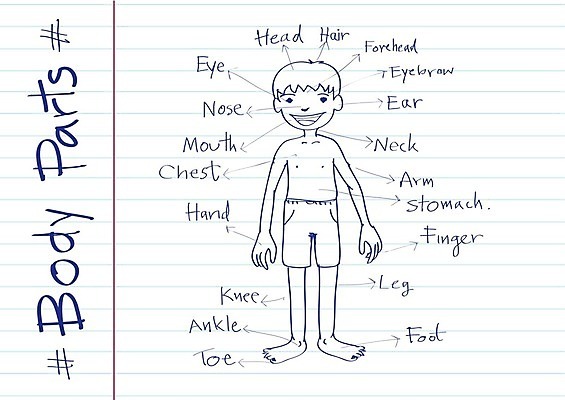 # Body Parts #
Head
Hair
Forehead
Eye
Eyebrow
Nose
Ear
Mouth
Neck
Chest
Arm
Stomach.
Hand
Finger
Knee
Leg
Ankle
Foot
Toe